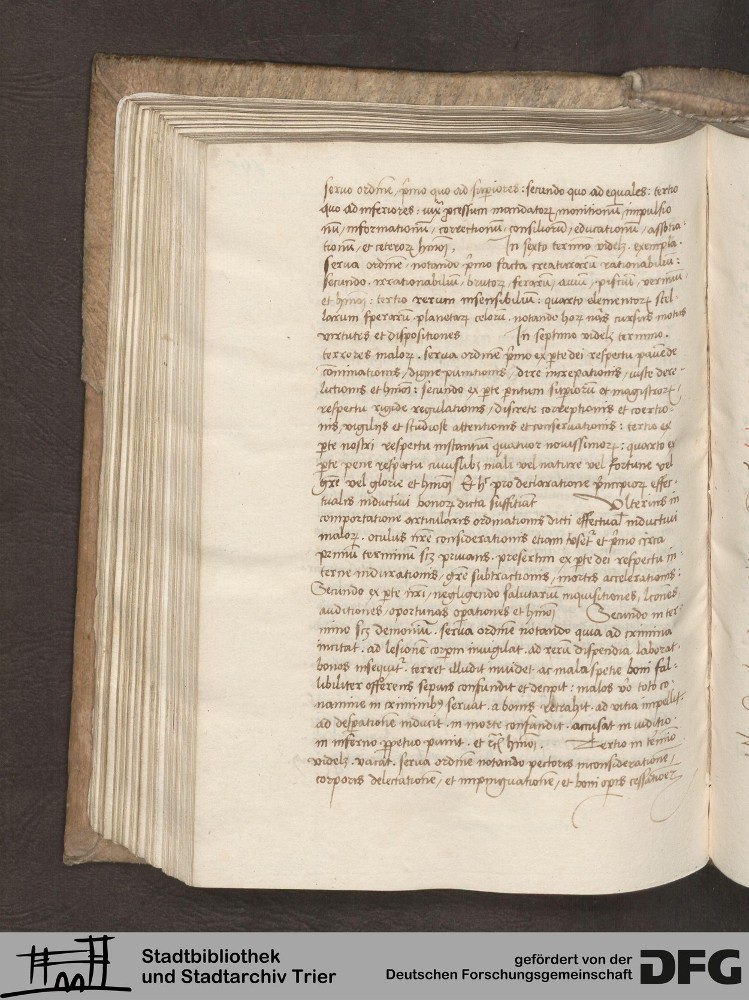 seruo ordine, primo quo ad superiores : secundo quo ad equales : tertio
quo ad inferiores : processum mandatorꝝ, monitionū, impulsio
nū, informationū, correctionū, consiliorū, educationū,
tionū, et ceterorꝝ hmōi. In sexto termino videlꝫ. exempla.
serua ordinē, notando primo facta creaturarū rationabiliū :
secundo. irrationabiliū, brutorꝝ, ferarū, auiū, pisciū, verminū,
et hmōi : tertio rerum insensibiliū : quarto elementorꝝ stel-
larum sperarū planetarꝝ celorū. notando horꝝ oīm cursus motus
virtutes et dispositiones In septimo videlꝫ termino.
terrores malorꝝ. serua ordinē primo ex pte dei respectu
cōminationis, digne punitionis, dire increpationis, iuste dere-
lictionis et hmōi : secundo ex pte superiorū et magistrorꝝ,
respectu rigide regulationis, discrete correptionis et coertio-
nis, vigilijs et studiose attentionis et conseruationis : tertio ex
pte nostri respectu instantiū quatuor nouissimorꝝ : quarto ex
pte pene respectu cuiuslibꝫ mali vel nature vel fortune vel
grē vel glorie et hmōi Et hec pro declaratione principiorꝝ effec-
tualis inductiui bonorꝝ dicta sufficiant Vlterius in
comportatione articularis ordinationis dicti effectualis inductiui
malorꝝ. oculus considerationis et primo circa
primū terminum scꝫ priuans. presertim ex pte dei respectu in-
terne indurationis, grē subtractionis, mortis accelerationis :
Secundo ex pte nri, negligendo salutarium inquisitiones, lcōnes,
auditiones, oportunas opationes et hmōi Secundo in ter-
mino scꝫ demoniū. serua ordinē notando quia ad crimina
incitat. ad lesionē corporum inuigilat. ad rerū dispendia laborat.
bonos insequit᷑. terret illudit inuidet. ac mala specie boni fal-
libiliter offerens sepius confundit et decipit : malos vō toto co-
namine in criminibꝰ seruat. a bonis retrahit. ad vitia impellit.
ad desperationē inducit. in morte confundit. accusat in iuditio.
in inferno ppetuo punit. et hmōi. Tertio in termino
videlꝫ. vacat. serua ordinē notando pectoris inconsiderationē,
corporis delectationē, et impinguationē, et boni opis
Stadtbibliothek
und Stadtarchiv Trier
gefördert von der
Deutschen Forschungsgemeinschaft
DFG